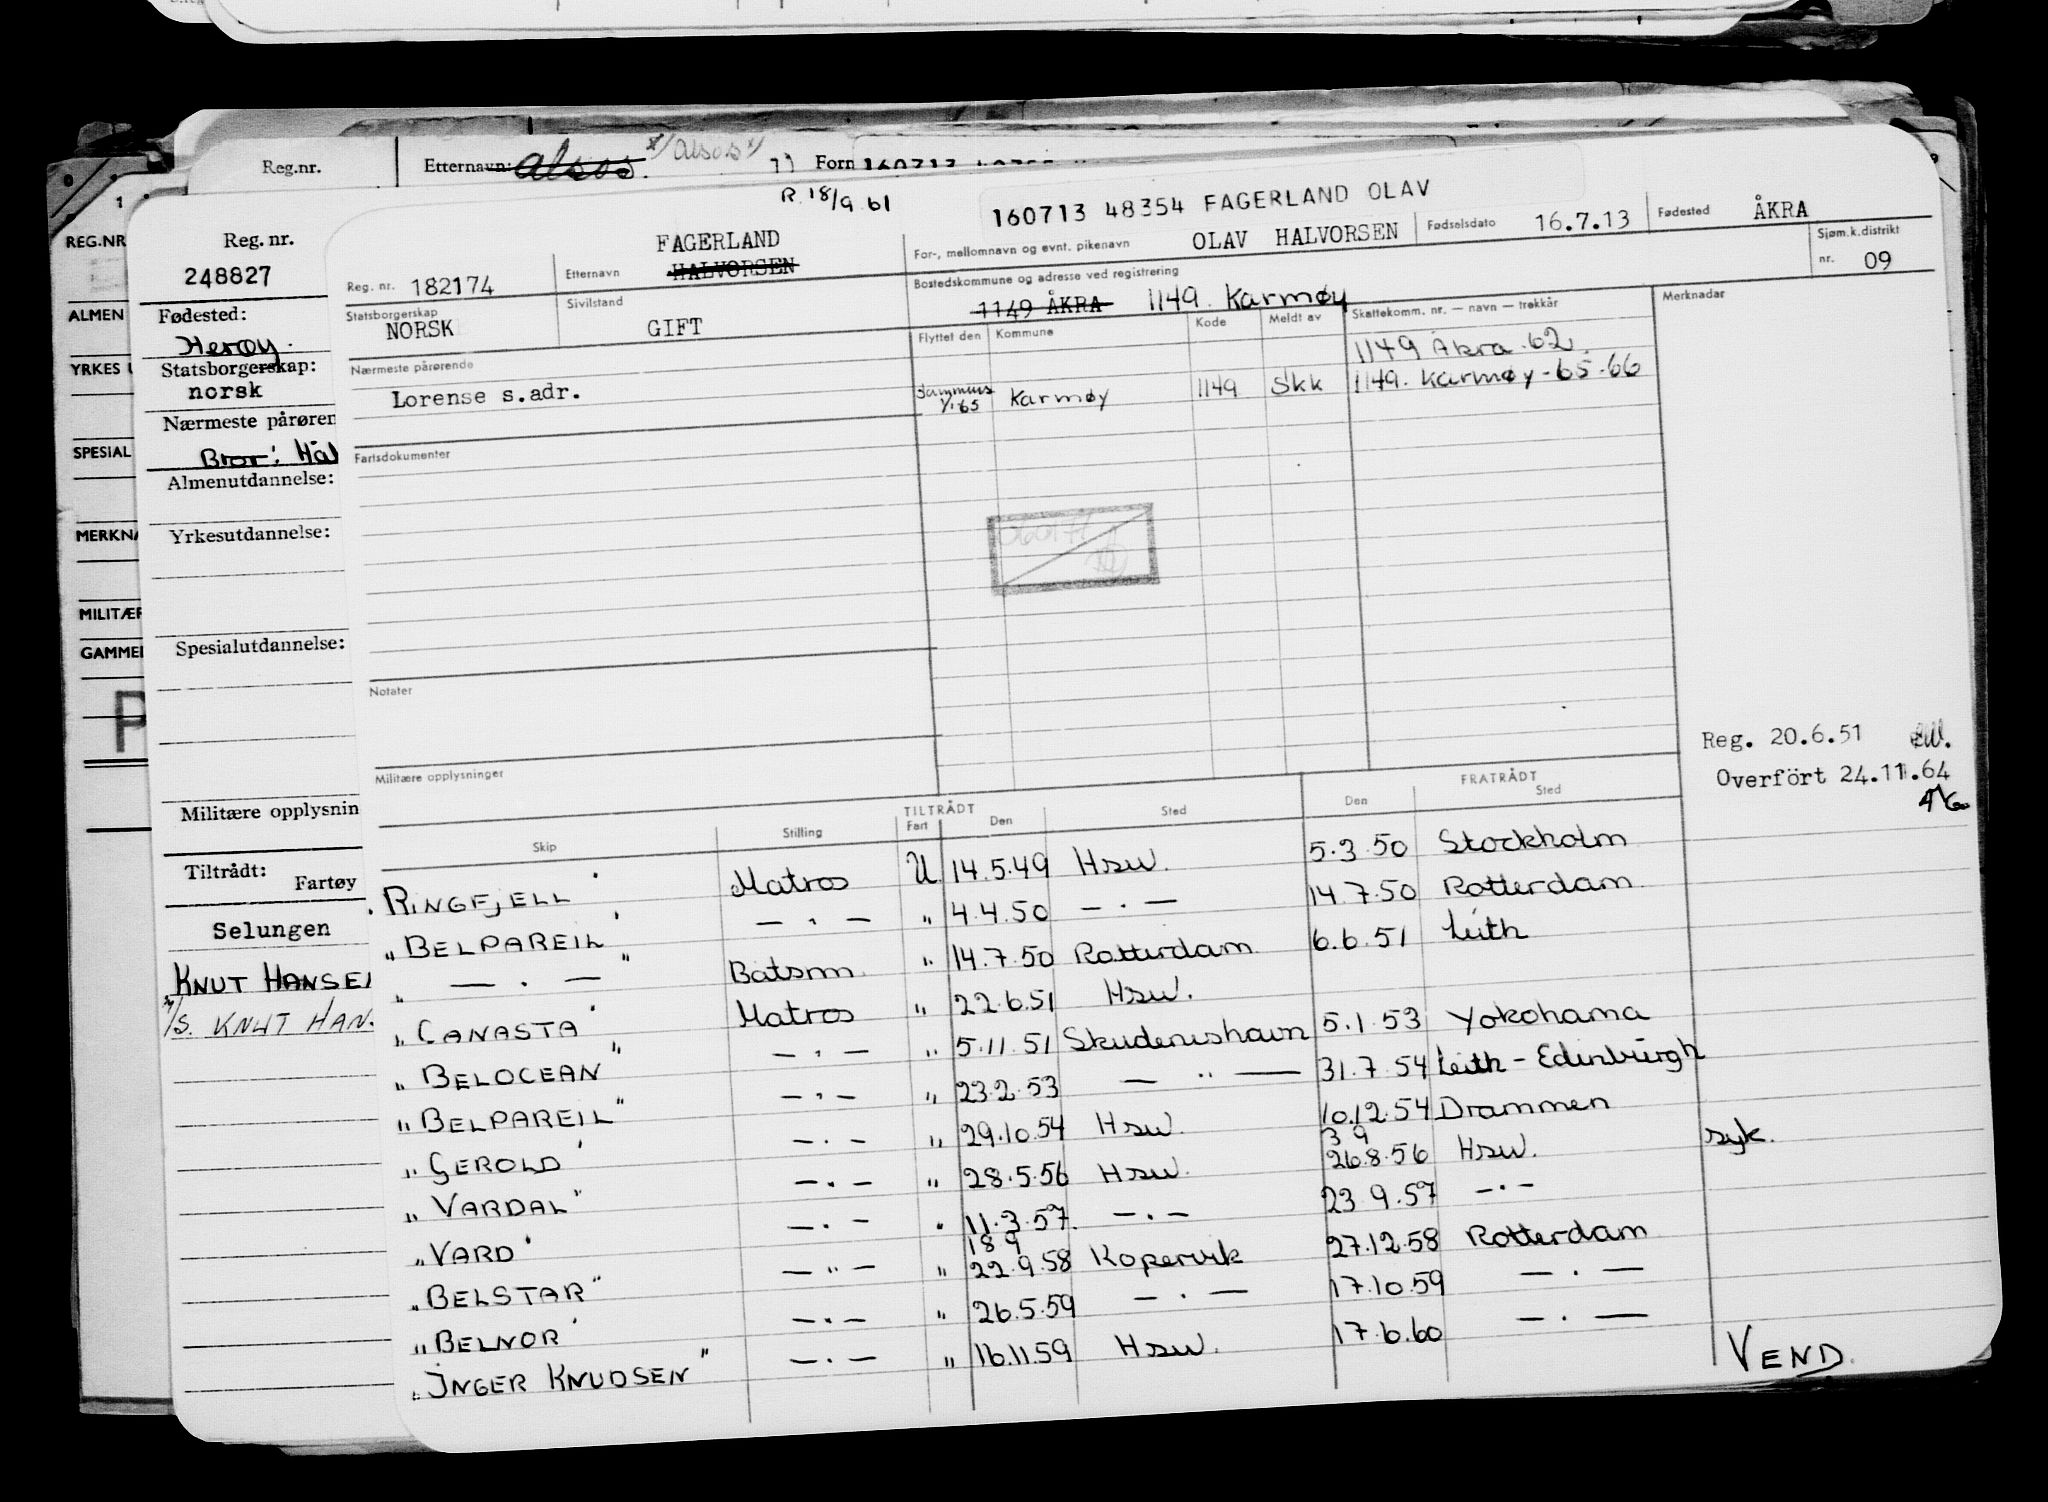 Reg.nr.
Etternavn: Alsos. x/ Alsos x/
Forn
R. 18/9 61
160713 48354 FAGERLAND OLAV
REG.NR
ALMEN
YRKES
SPESIAL
MERKNA
MILITÆR
GAMMEL
P
Reg. nr.
248827
Fødested:
Herøy.
Statsborgerskap:
norsk
Nærmeste pårøren
Bror: Hal
Almenutdannelse:
Yrkesutdannelse:
Spesialutdannelse:
Militære opplysnin
Tiltrådt:
Fartøy
Selungen
KNUT HANSE
M/S. KNUT HAN.
Reg. nr. 182174
Etternavn FAGERLAND
HALVORSEN
For-, mellomnavn og evnt. pikenavn OLAV HALVORSEN
Fødselsdato 16.7.13
Fødested ÅKRA
Statsborgerskap NORSK
Sivilstand GIFT
Bostedskommune og adresse ved registrering
1149 ÅKRA 1149. Karmøy
Sjøm.k.distrikt nr. 09
Nærmeste pårørende
Lorense s.adr.
Flyttet den Kommune Kode Meldt av Skattekomm. nr. — navn — trekkår Merknader
1149 Åkra 62
Sammens 1/1 65 Karmøy 1149 Skk 1149. Karmøy-65-66
Fartsdokumenter
Notater
Militære opplysninger
Reg. 20.6.51
Overfört 24.11.64
TILTRÅDT FRATRÅDT
Skip Stilling Fart Den Sted Den Sted
"RINGFJELL" Matros U 14.5.49 Hsu. 5.3.50 Stockholm
"BELPAREIL" — " — " 4.4.50 — " — 14.7.50 Rotterdam
" — " — " Båtsm. " 14.7.50 Rotterdam 6.6.51 Leith
"CANASTA" Matros " 22.6.51 Hsu.
"BELOCEAN" — " — " 5.11.51 Skudeneshavn 5.1.53 Yokohama
"BELPAREIL" — " — " 23.2.53 — " — 31.7.54 Leith - Edinburgh
"GEROLD" — " — " 29.10.54 Hsu. 10.12.54 Drammen
"VARDAL" — " — " 28.5.56 Hsu. 3 9 26.8.56 Hsu. syk.
"VARD" — " — " 11.3.57. — " — 23.9.57 — " —
"BELSTAR" — " — " 18 9 22.9.58 Kopervik 27.12.58 Rotterdam
"BELNOR" — " — " 26.5.59 — " — 17.10.59 — " —
"INGER KNUDSEN" — " — " 16.11.59 Hsu. 17.6.60 — " —
VEND.